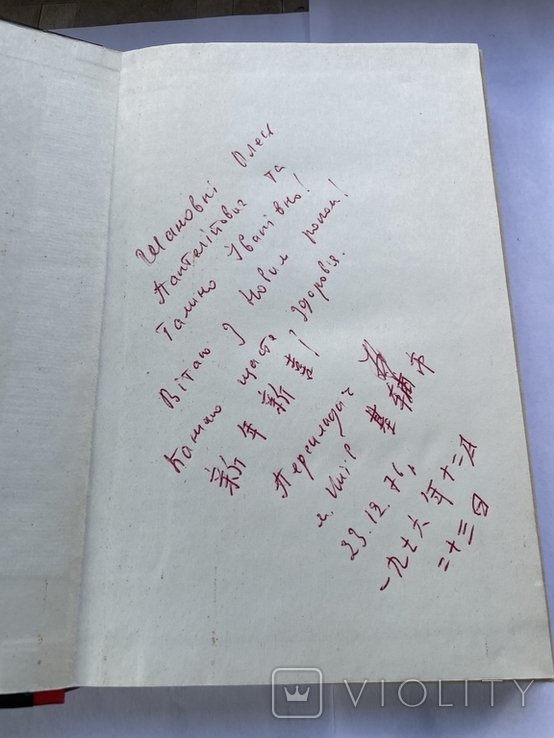 Шановні Олесь
Пантелійович та
Галино Іванівно!
Вітаю з Новим роком!
Бажаю щастя і здоров'я.
新年新喜
Перекладач
м. Київ 基輔市
23.12.76,
一九七六年十二月
二十三日
VIOLITY